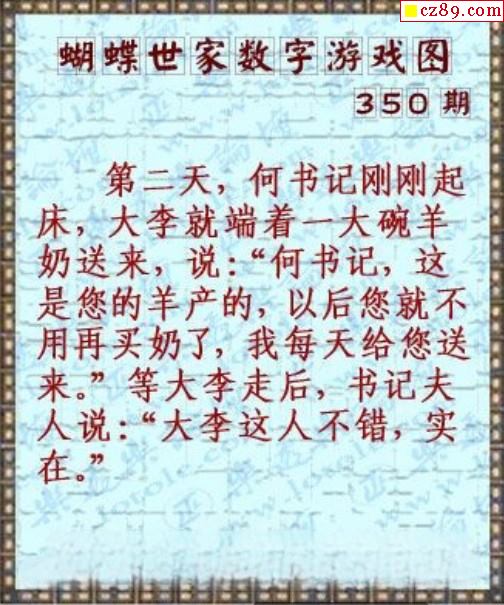 cz89.com
蝴蝶世家数字游戏图
350期
第二天，何书记刚刚起
床，大李就端着一大碗羊
奶送来，说：“何书记，这
是您的羊产的，以后您就不
用再买奶了，我每天给您送
来。”等大李走后，书记夫
人说：“大李这人不错，实
在。”